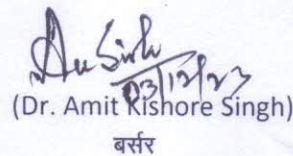 03/12/23
(Dr. Amit Kishore Singh)
बर्सर